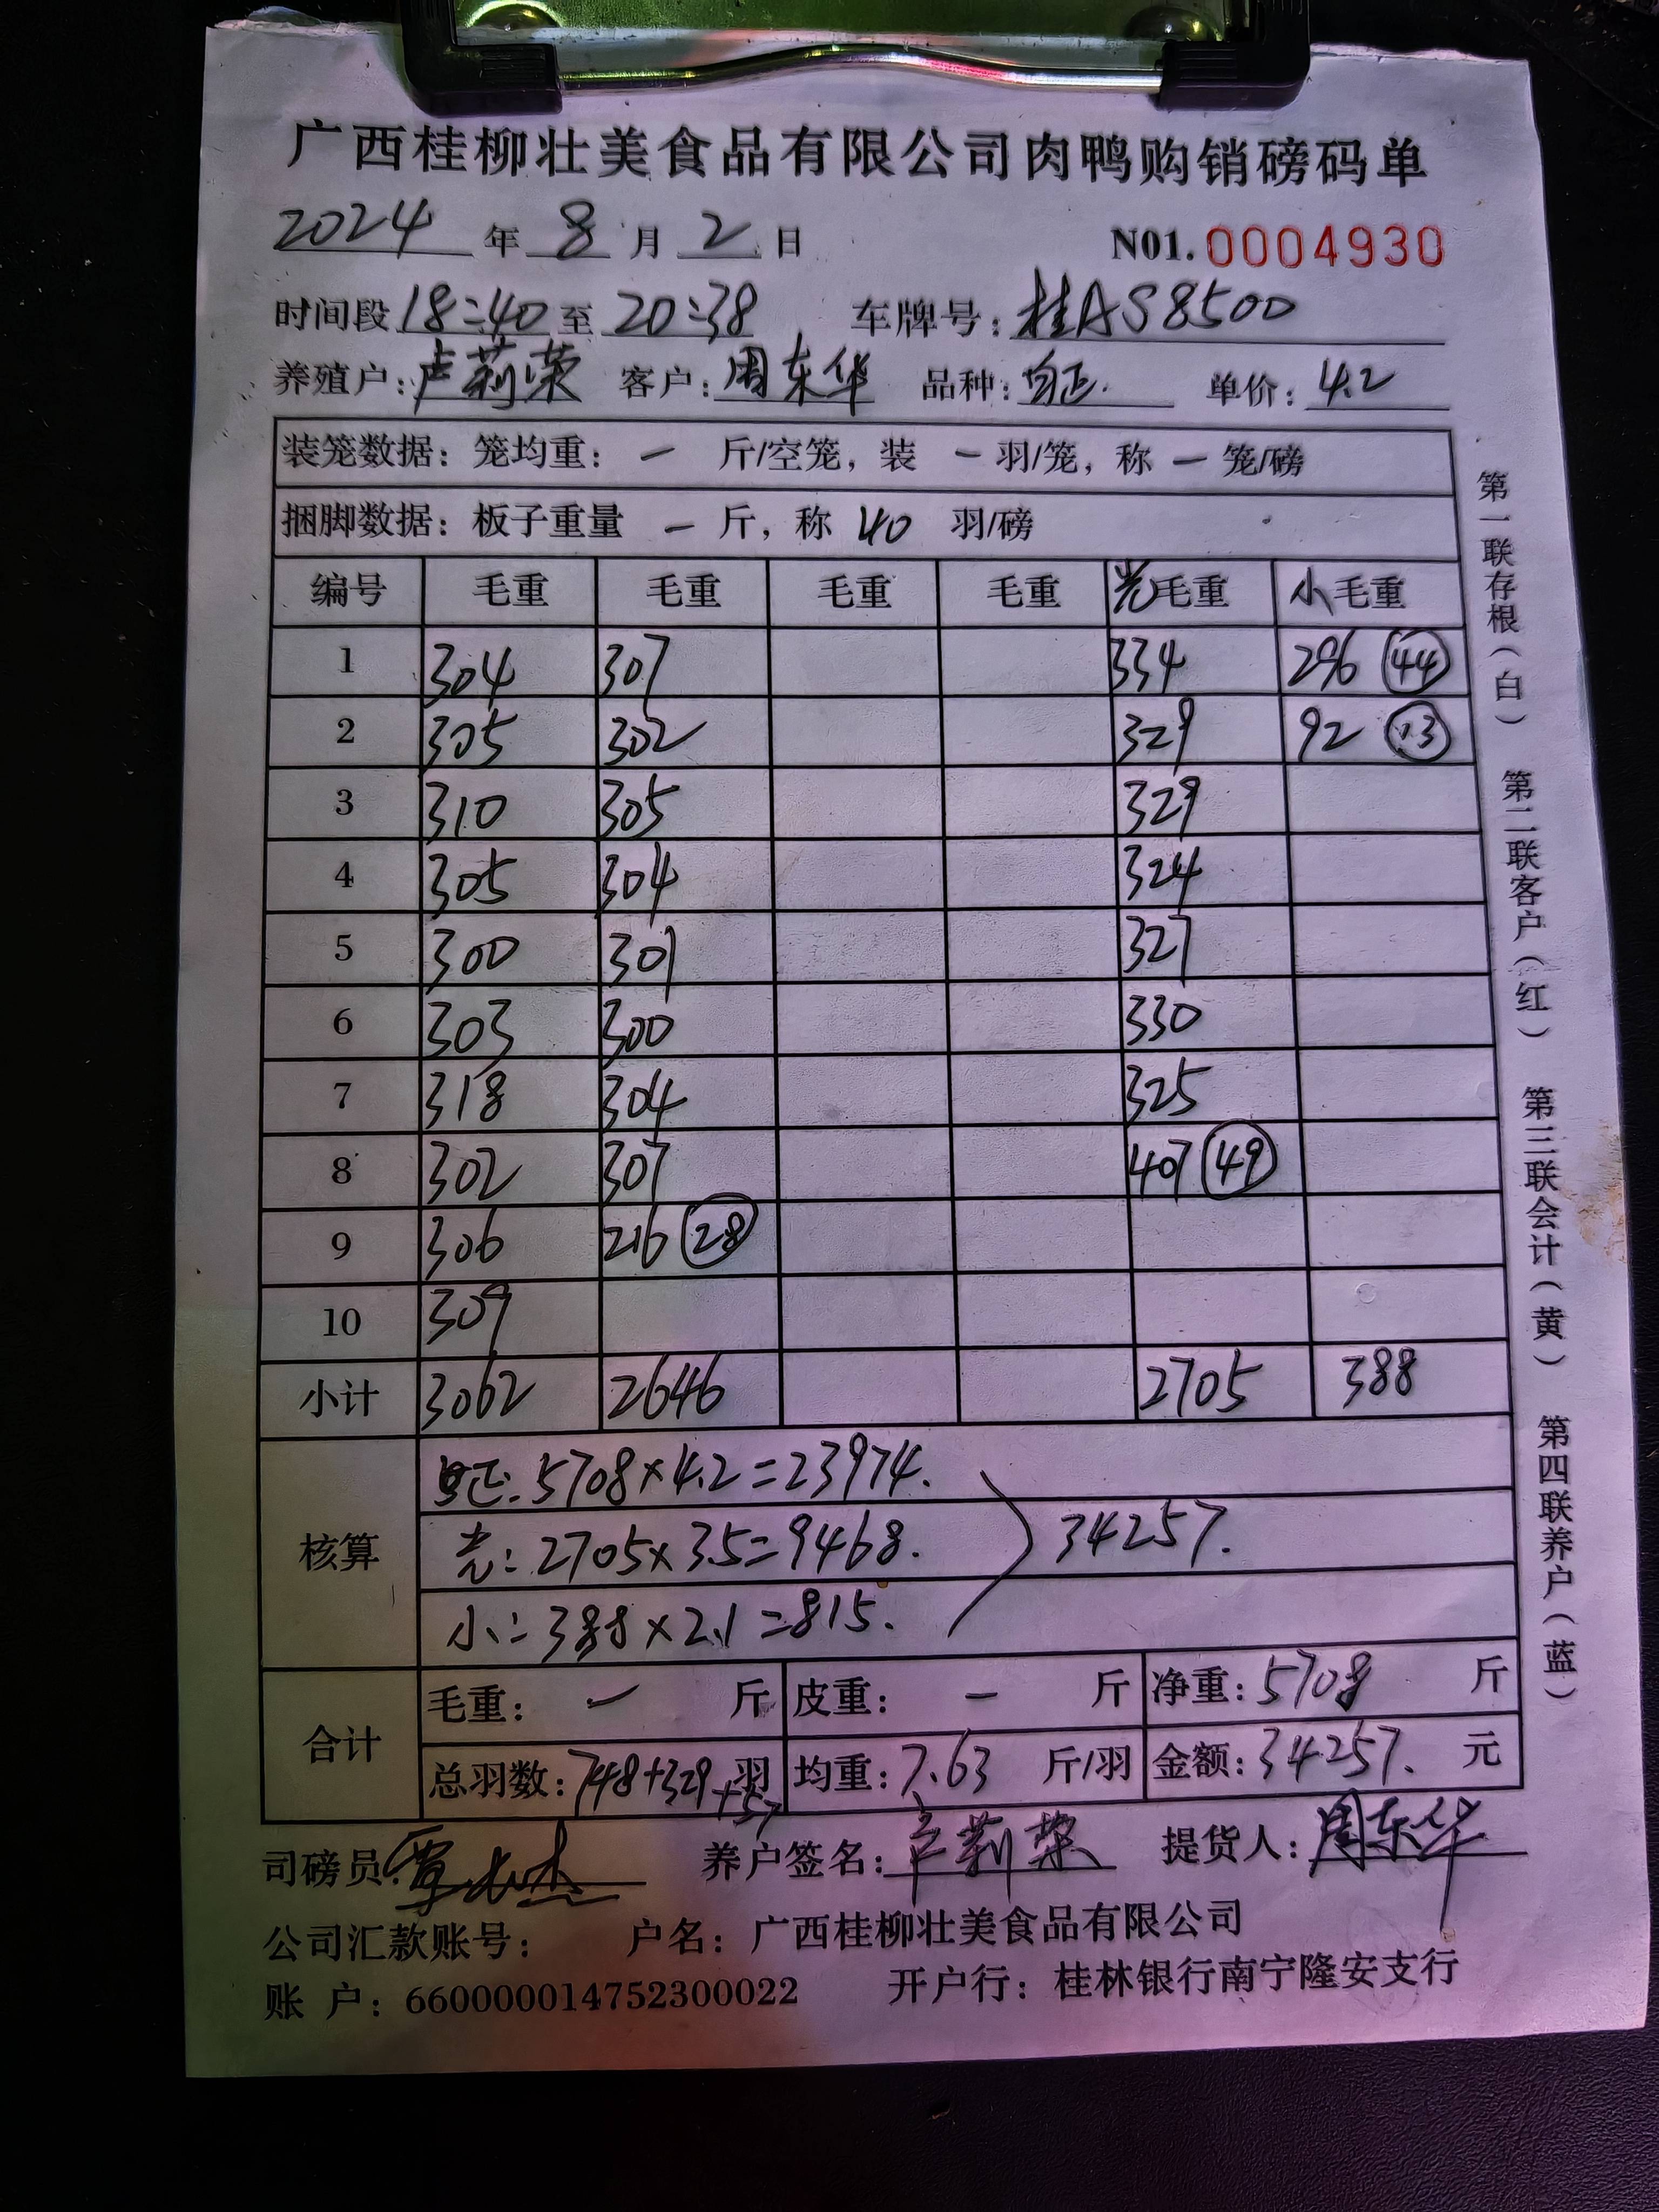 广西桂柳壮美食品有限公司肉鸭购销磅码单
2024 年 8 月 2 日 N01. 0004930
时间段 18:40 至 20:38 车牌号: 桂AS8500
养殖户: 卢莉荣 客户: 周东华 品种: 正. 单价: 4.2
装笼数据: 笼均重: — 斤/空笼, 装 — 羽/笼, 称 — 笼/磅
捆脚数据: 板子重量 — 斤, 称 40 羽/磅
编号 毛重 毛重 毛重 毛重 光毛重 小毛重
1 304 307 334 296 44
2 305 302 329 92 13
3 310 305 329
4 305 304 324
5 300 301 327
6 303 300 330
7 318 304 325
8 302 307 407 49
9 306 216 28
10 309
小计 3062 2646 2705 388
核算
正: 5708×4.2=23974.
光: 2705×3.5=9468. 34257.
小: 388×2.1=815.
合计
毛重: — 斤 皮重: — 斤 净重: 5708 斤
总羽数: 748+329+57 羽 均重: 7.63 斤/羽 金额: 34257. 元
司磅员: 养户签名: 卢莉荣 提货人: 周东华
公司汇款账号: 户名: 广西桂柳壮美食品有限公司
账 户: 660000014752300022 开户行: 桂林银行南宁隆安支行
第一联存根(白) 第二联客户(红) 第三联会计(黄) 第四联养户(蓝)